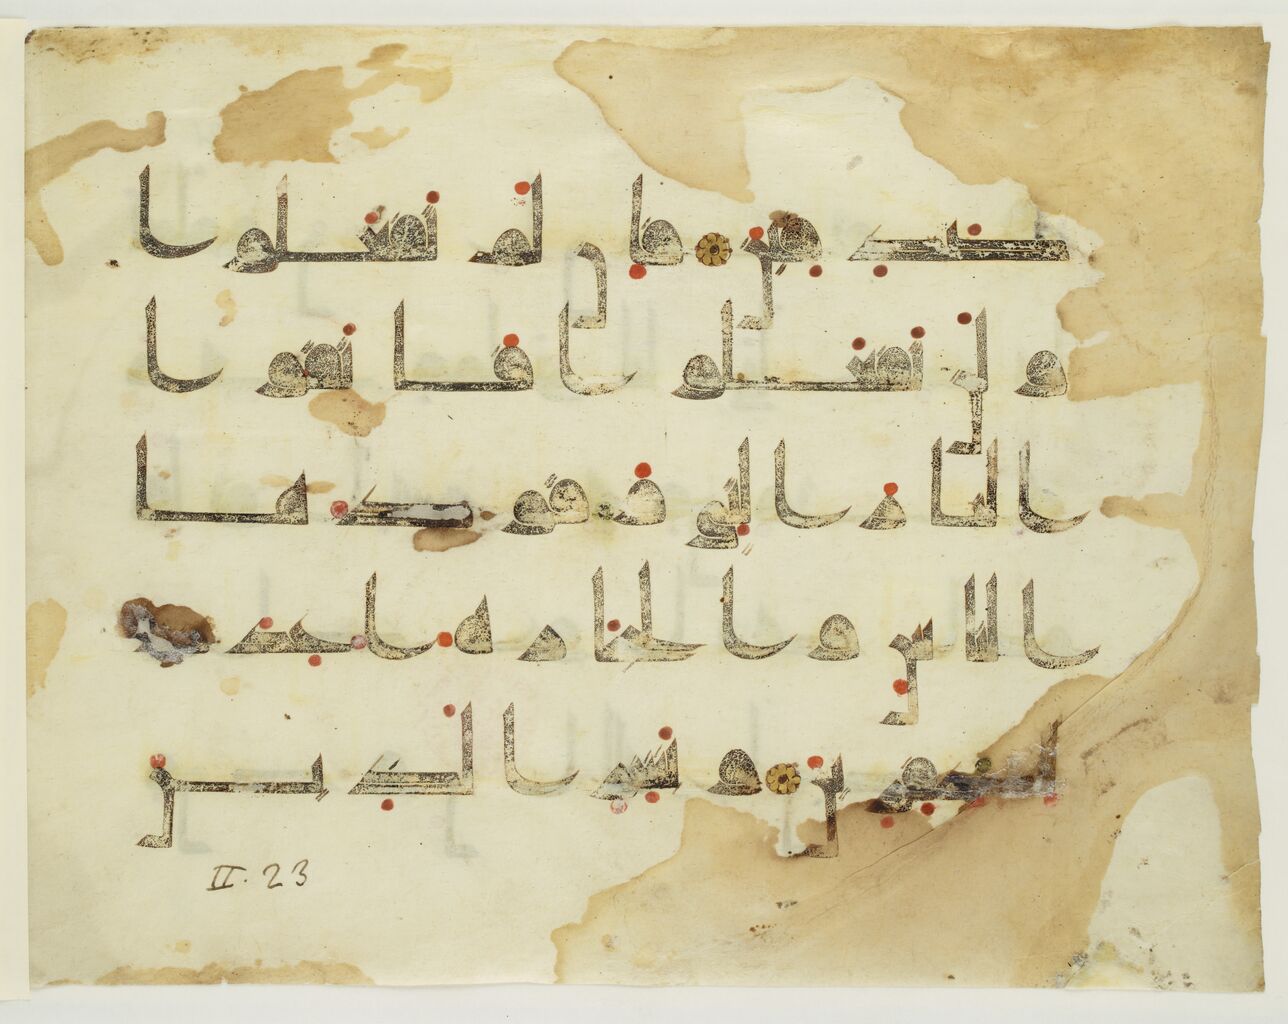 صدقين فان لم تفعلوا
ولن تفعلوا فاتقوا
النار التي وقودها
الناس والحجارة اعدت
للكفرين وبشر الذين
II. 23